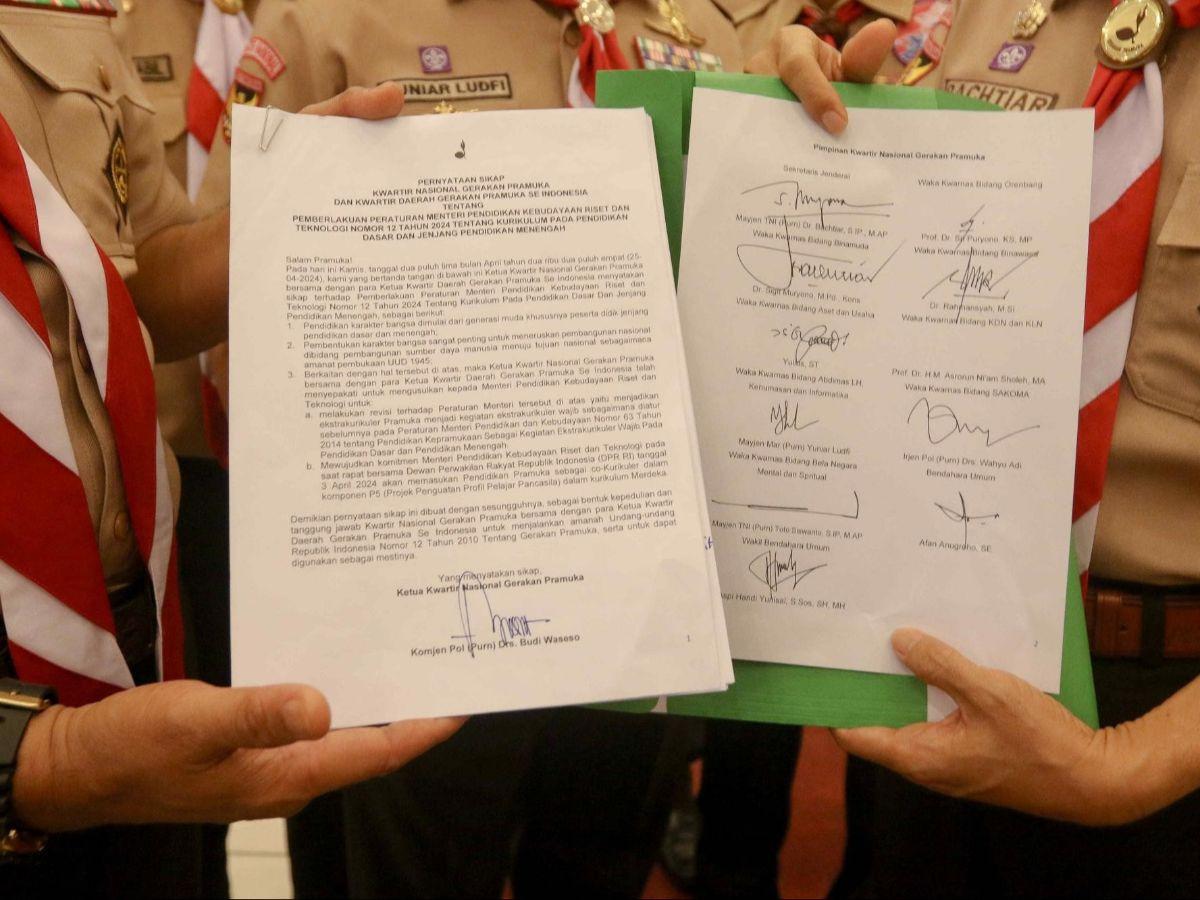 UNIAR LUDFI
BACHTIAR
PERNYATAAN SIKAP
KWARTIR NASIONAL GERAKAN PRAMUKA
DAN KWARTIR DAERAH GERAKAN PRAMUKA SE INDONESIA
TENTANG
PEMBERLAKUAN PERATURAN MENTERI PENDIDIKAN KEBUDAYAAN RISET DAN
TEKNOLOGI NOMOR 12 TAHUN 2024 TENTANG KURIKULUM PADA PENDIDIKAN
DASAR DAN JENJANG PENDIDIKAN MENENGAH
Salam Pramuka!
Pada hari ini Kamis, tanggal dua puluh lima bulan April tahun dua ribu dua puluh empat (25-
04-2024), kami yang bertanda tangan di bawah ini Ketua Kwartir Nasional Gerakan Pramuka
bersama dengan para Ketua Kwartir Daerah Gerakan Pramuka Se Indonesia menyatakan
sikap terhadap Pemberlakuan Peraturan Menteri Pendidikan Kebudayaan Riset dan
Teknologi Nomor 12 Tahun 2024 Tentang Kurikulum Pada Pendidikan Dasar Dan Jenjang
Pendidikan Menengah, sebagai berikut:
1. Pendidikan karakter bangsa dimulai dari generasi muda khususnya peserta didik jenjang
pendidikan dasar dan menengah;
2. Pembentukan karakter bangsa sangat penting untuk meneruskan pembangunan nasional
dibidang pembangunan sumber daya manusia menuju tujuan nasional sebagaimana
amanat pembukaan UUD 1945;
3. Berkaitan dengan hal tersebut di atas, maka Ketua Kwartir Nasional Gerakan Pramuka
bersama dengan para Ketua Kwartir Daerah Gerakan Pramuka Se Indonesia telah
menyepakati untuk mengusulkan kepada Menteri Pendidikan Kebudayaan Riset dan
Teknologi untuk:
a. melakukan revisi terhadap Peraturan Menteri tersebut di atas yaitu menjadikan
ekstrakurikuler Pramuka menjadi kegiatan ekstrakurikuler wajib sebagaimana diatur
sebelumnya pada Peraturan Menteri Pendidikan dan Kebudayaan Nomor 63 Tahun
2014 tentang Pendidikan Kepramukaan Sebagai Kegiatan Ekstrakurikuler Wajib Pada
Pendidikan Dasar dan Pendidikan Menengah.
b. Mewujudkan komitmen Menteri Pendidikan Kebudayaan Riset dan Teknologi pada
saat rapat bersama Dewan Perwakilan Rakyat Republik Indonesia (DPR RI) tanggal
3 April 2024 akan memasukan Pendidikan Pramuka sebagai co-Kurikuler dalam
komponen P5 (Projek Penguatan Profil Pelajar Pancasila) dalam kurikulum Merdeka.
Demikian pernyataan sikap ini dibuat dengan sesungguhnya, sebagai bentuk kepedulian dan
tanggung jawab Kwartir Nasional Gerakan Pramuka bersama dengan para Ketua Kwartir
Daerah Gerakan Pramuka Se Indonesia untuk menjalankan amanah Undang-undang
Republik Indonesia Nomor 12 Tahun 2010 Tentang Gerakan Pramuka, serta untuk dapat
digunakan sebagai mestinya.
Yang menyatakan sikap,
Ketua Kwartir Nasional Gerakan Pramuka
Komjen Pol (Purn) Drs. Budi Waseso
1
Pimpinan Kwartir Nasional Gerakan Pramuka
Sekretaris Jenderal
Mayjen TNI (Purn) Dr. Bachtiar, S.IP., M.AP
Waka Kwarnas Bidang Binamuda
Dr. Sigit Muryono, M.Pd., Kons
Waka Kwarnas Bidang Aset dan Usaha
Yulius, ST
Waka Kwarnas Bidang Abdimas LH,
Kehumasan dan Informatika
Mayjen Mar (Purn) Yuniar Ludfi
Waka Kwarnas Bidang Bela Negara
Mental dan Spritual
Mayjen TNI (Purn) Toto Siswanto, S.IP, M.AP
Wakil Bendahara Umum
Handi Yuhisai, S.Sos, SH, MH
Waka Kwarnas Bidang Orenbang
Prof. Dr. Sri Puryono. KS, MP
Waka Kwarnas Bidang Binawasa
Dr. Rahmansyah, M.Si
Waka Kwarnas Bidang KDN dan KLN
Prof. Dr. H.M. Asrorun Ni'am Sholeh, MA
Waka Kwarnas Bidang SAKOMA
Irjen Pol (Purn) Drs. Wahyu Adi
Bendahara Umum
Afan Anugroho, SE
2